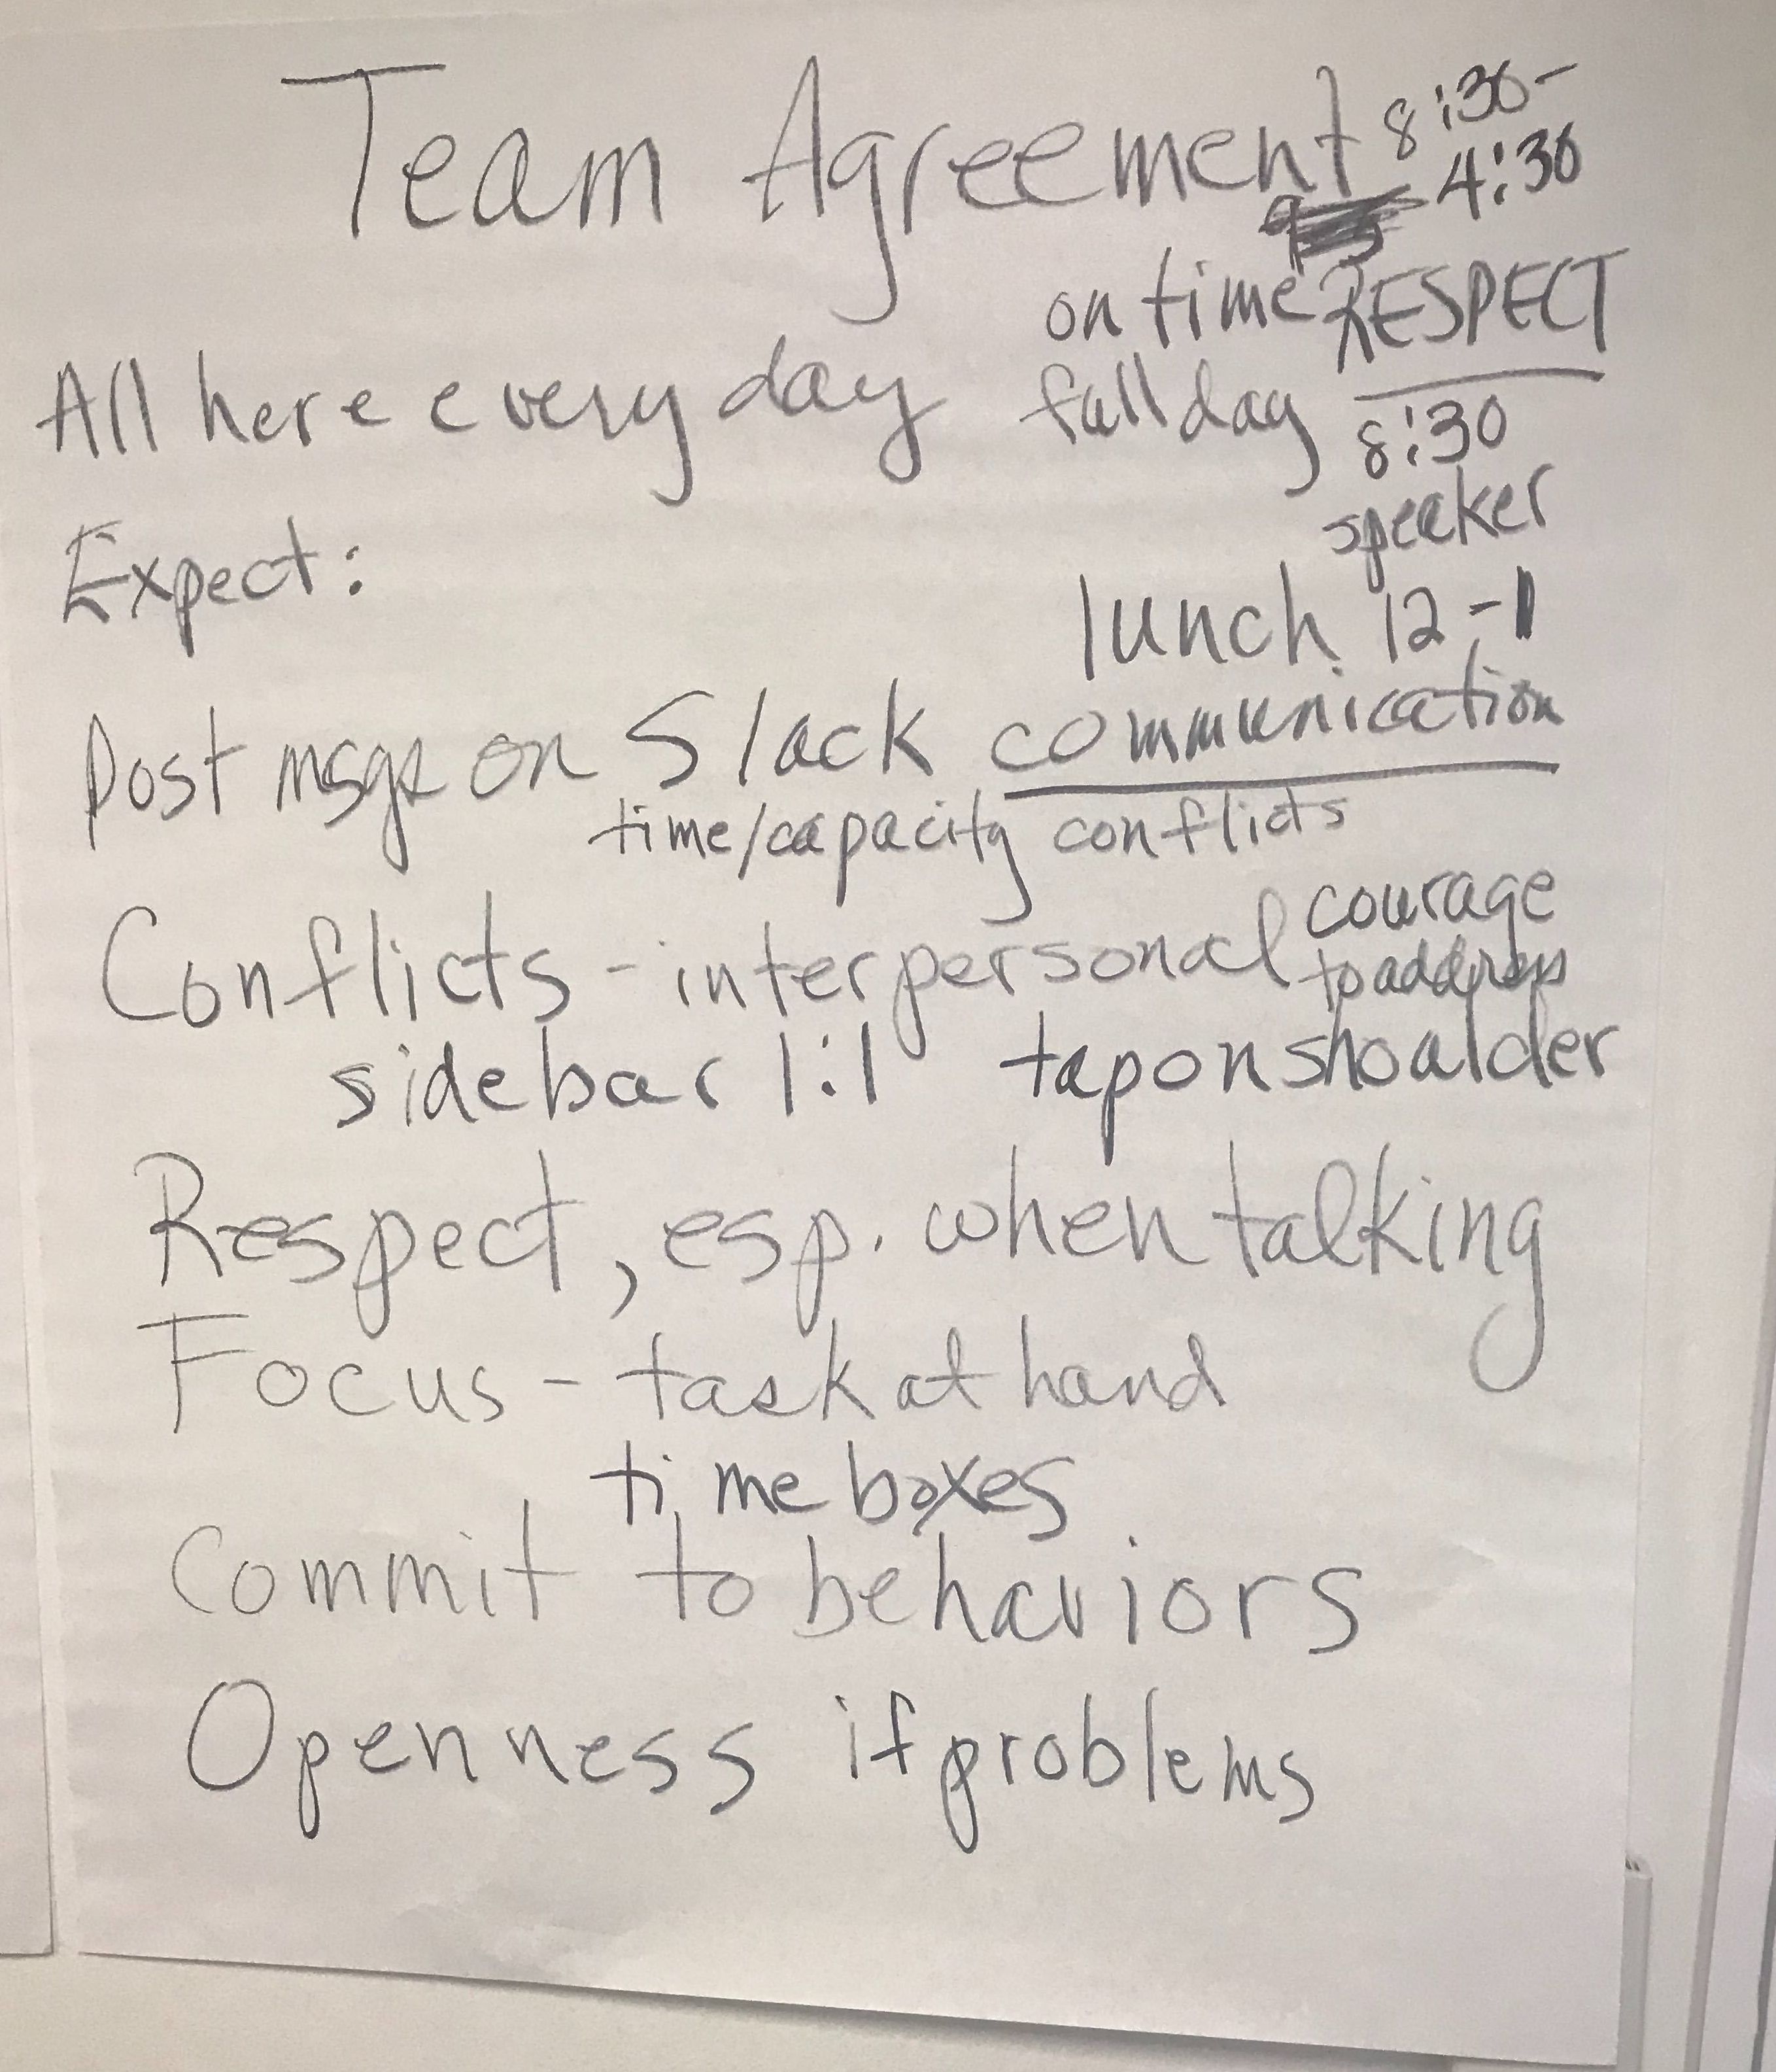 Team Agreement 8:30-
4:30
on time RESPECT
All here every day full day 8:30
speaker
Expect:
lunch 12-1
Post msgs on Slack communication
time/capacity conflicts
Conflicts - interpersonal courage
to address
sidebar 1:1 tap on shoulder
Respect, esp. when talking
Focus - task at hand
time boxes
Commit to behaviors
Openness if problems